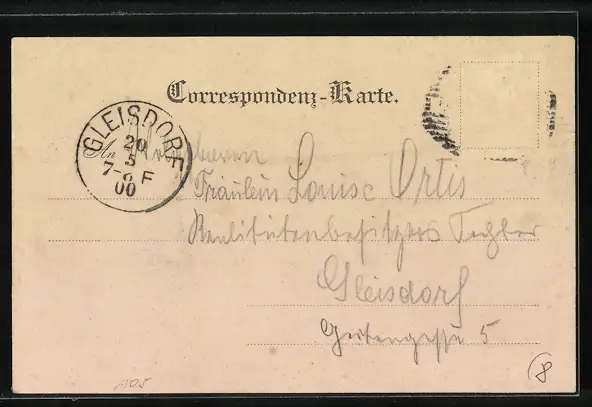 Correspondenz-Karte.
GLEISDORF
20
5
7-8 F
00
An
Fräulein Louise Ortis
Realitätenbesitzers Tochter
Gleisdorf
Gartengasse 5
8